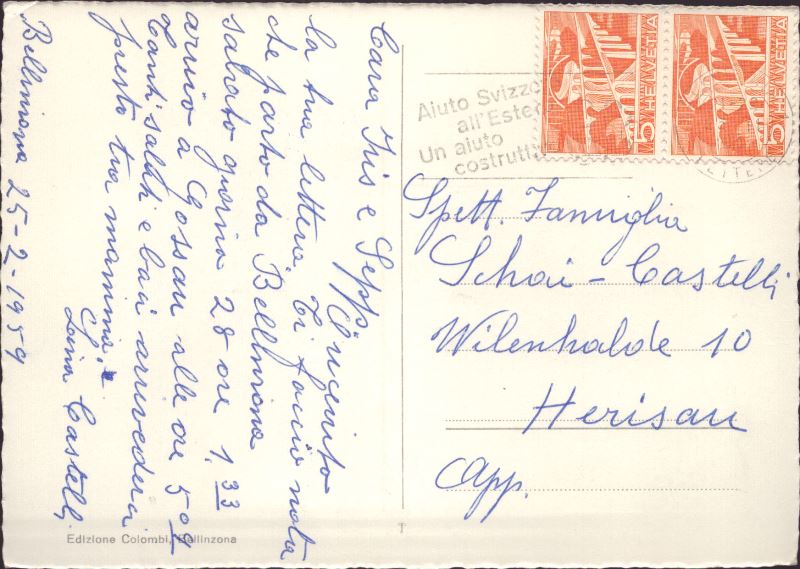 Bellinzona 25-2-1959
Cara Iris e Seppi
Ricevuto
la tua lettera ti faccio nota
che parto da Bellinzona
sabato giorno 28 ore 1,33
arrivo a Gossau alle ore 5 09
Tanti saluti e baci arrivederci
presto tua mamma
Lina Castelli
Spett. Famiglia
Schai - Castelli
Wilenhalde 10
Herisau
App.
Aiuto Svizzo
all'Este
Un aiuto
costrutti
5 HELVETIA
5 HELVETIA
LETTER
Edizione Colombi, Bellinzona
T